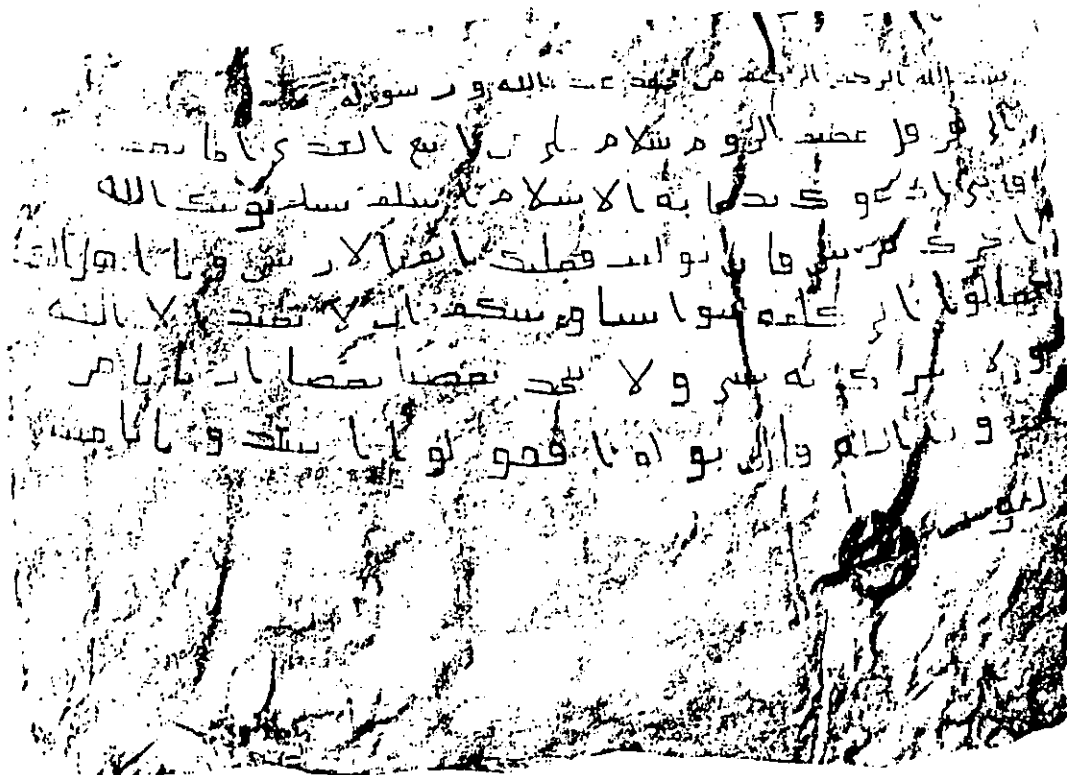 بسم الله الرحمن الرحيم من محمد عبد الله و رسوله
الى هرقل عظيم الروم سلام على من اتبع الهدى اما بعد
فانى ادعوك بدعاية الاسلام اسلم تسلم يوتك الله
اجرك مرتين فان توليت فعليك اثم الاريسين و يا اهل الكتاب
تعالوا الى كلمة سوا بيننا وبينكم ان لا نعبد الا الله
ولا نشرك به شيا ولا يتخذ بعضنا بعضا اربابا من
دون الله فان تولوا فقولوا اشهدوا بانا مس
لمون